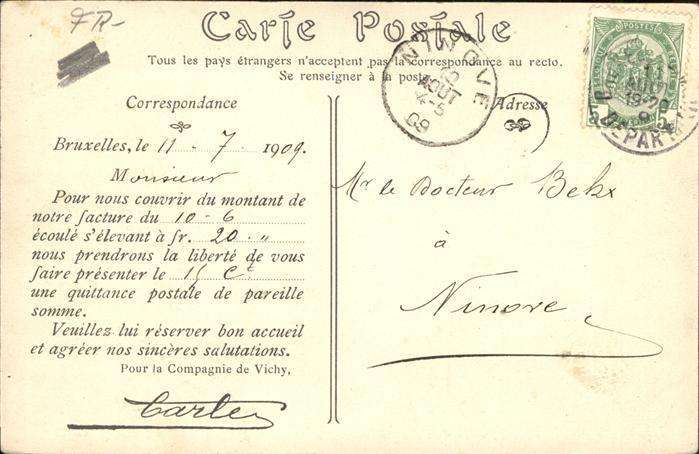 FR-
Carte Postale
Tous les pays étrangers n'acceptent pas la correspondance au recto.
Se renseigner à la poste.
Correspondance
Bruxelles, le 11 - 7 1909.
Monsieur
Pour nous couvrir du montant de
notre facture du 10 - 6
écoulé s'élevant à fr. 20 . "
nous prendrons la liberté de vous
faire présenter le 15 Ct
une quittance postale de pareille
somme.
Veuillez lui réserver bon accueil
et agréer nos sincères salutations.
Pour la Compagnie de Vichy,
NINOVE
AOUT
4-5
09
Adresse
Mr le Docteur
à
Ninove
5
DEPART